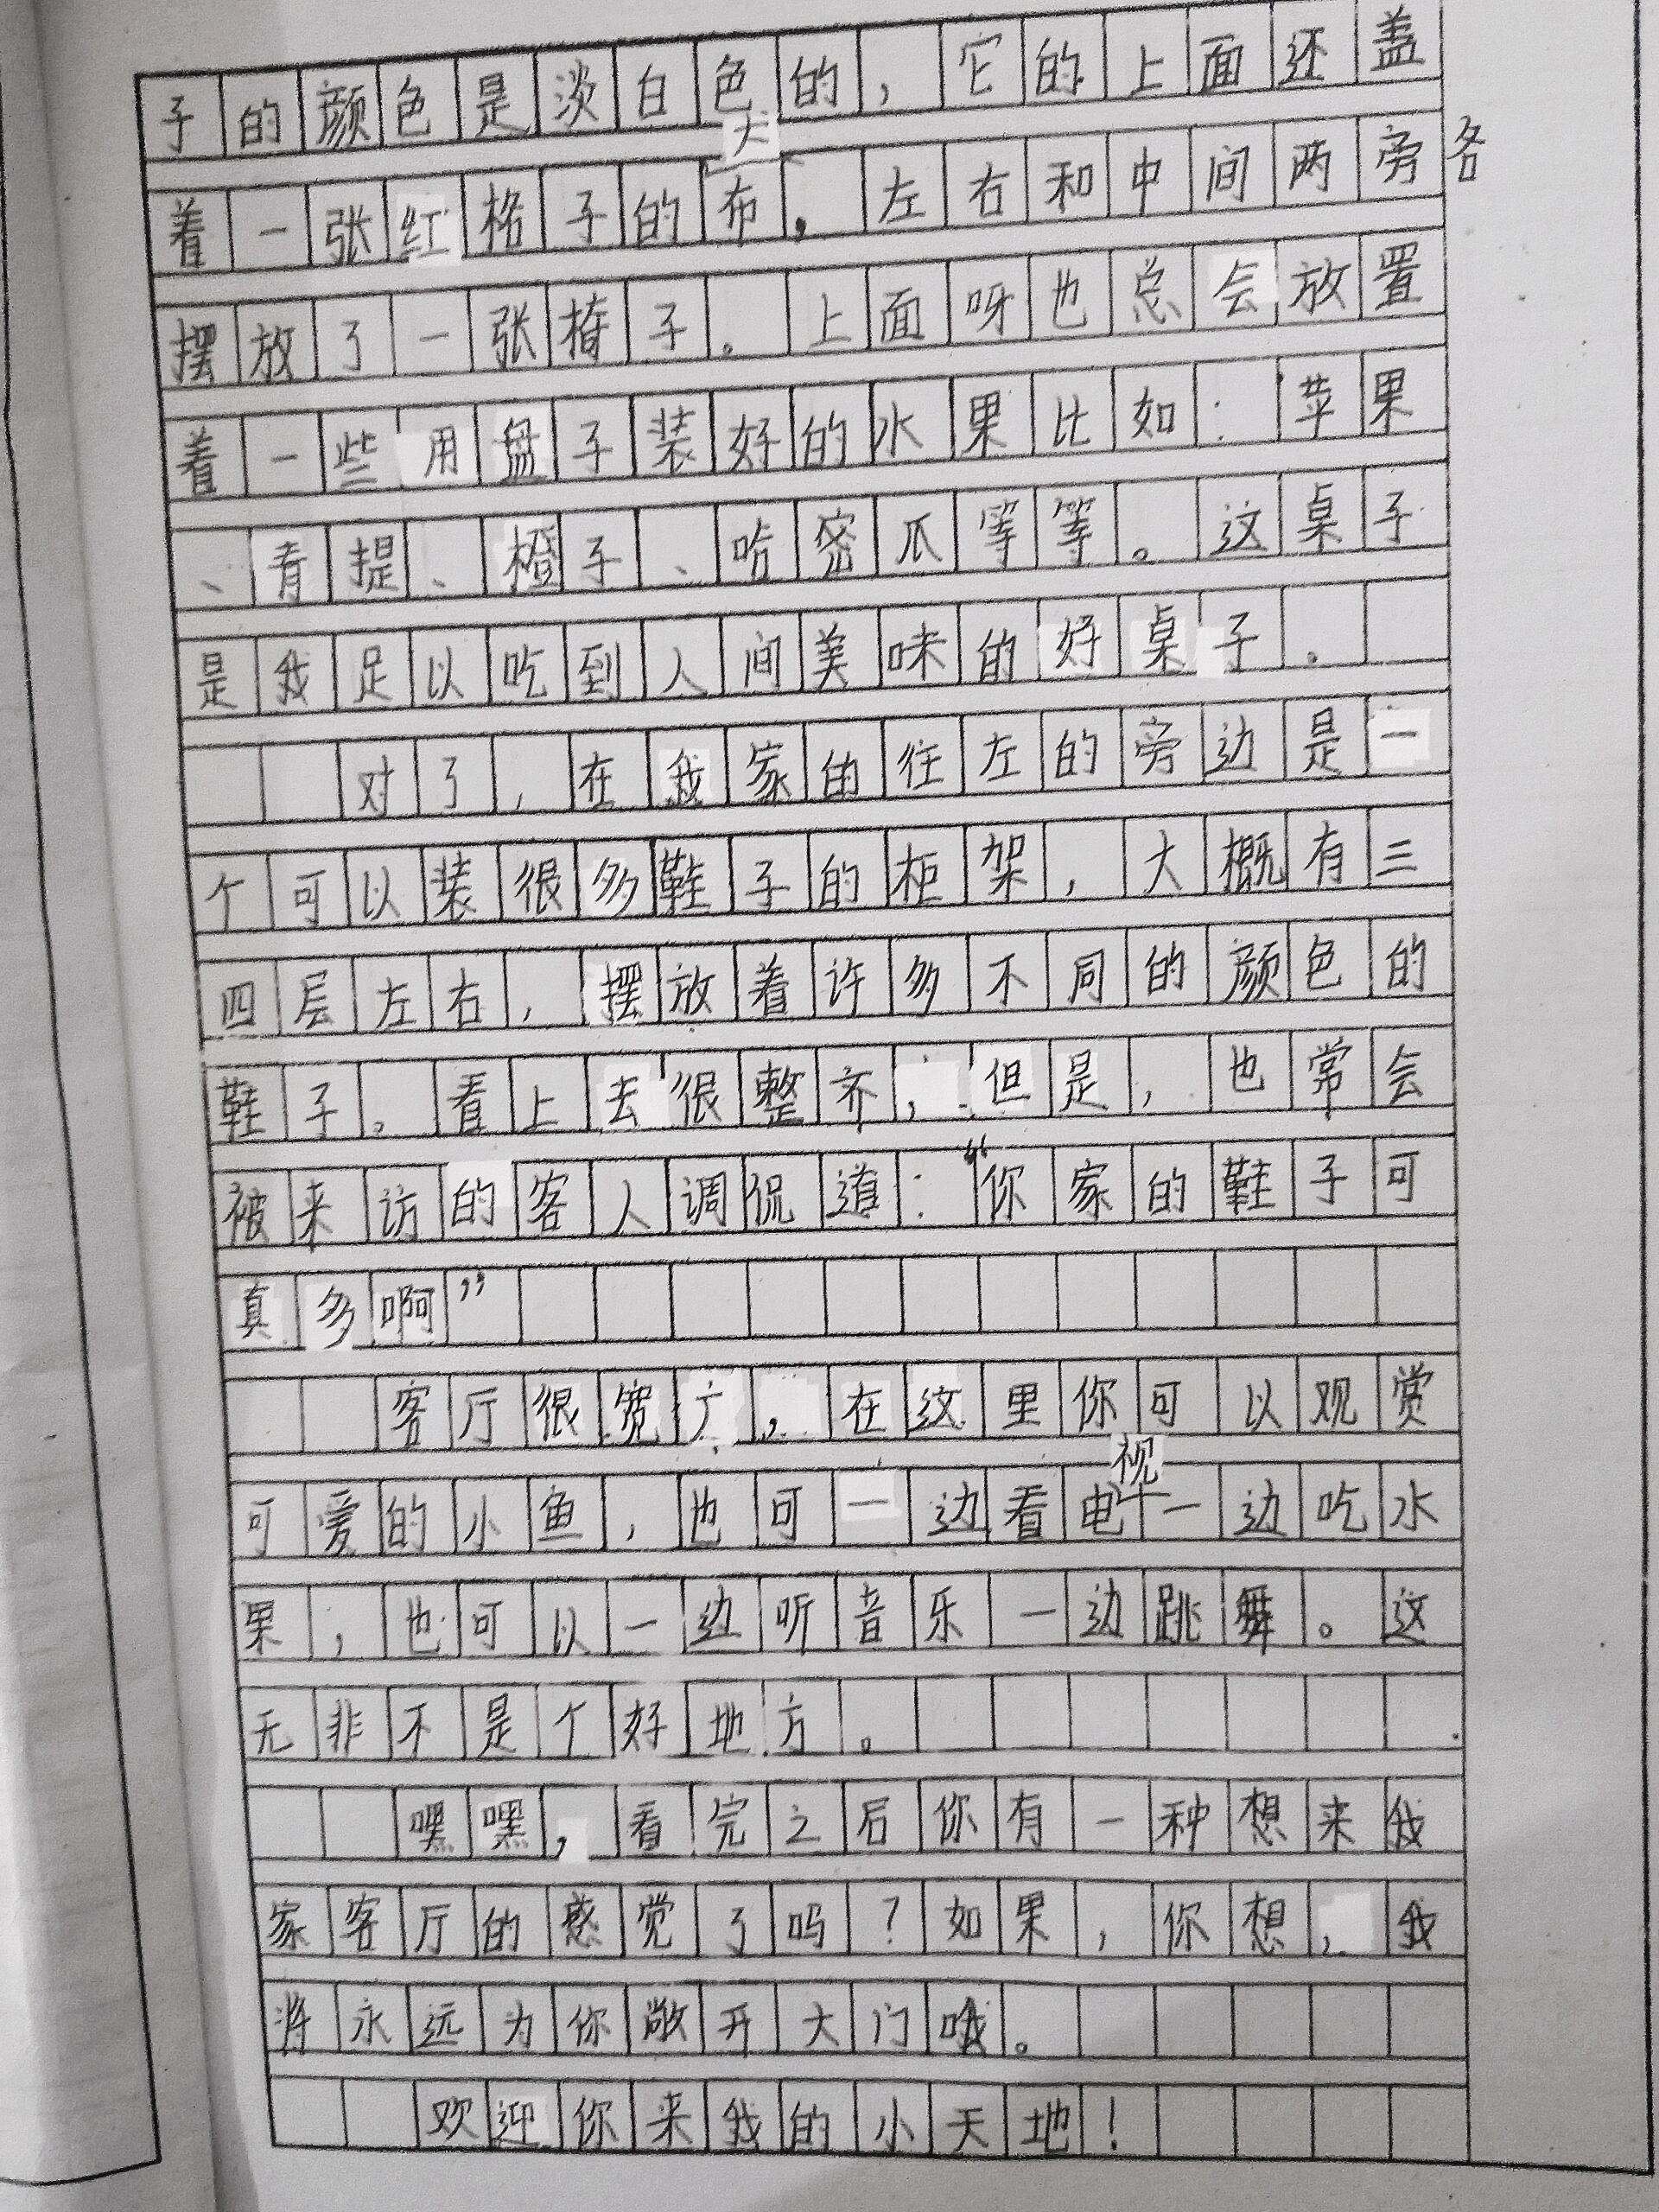 子的颜色是淡白色的，它的上面还盖
着一张红格子的大布，左右和中间两旁各
摆放了一张椅子。上面呀也总会放置
着一些用盘子装好的水果比如：苹果
、青提、橙子、哈密瓜等等。这桌子
是我足以吃到人间美味的好桌子。
对了，在我家的往左的旁边是一
个可以装很多鞋子的柜架，大概有三
四层左右，摆放着许多不同的颜色的
鞋子。看上去很整齐，但是，也常会
被来访的客人调侃道：“你家的鞋子可
真多啊”
客厅很宽广，在这里你可以观赏
可爱的小鱼，也可一边看电视一边吃水
果，也可以一边听音乐一边跳舞。这
无非不是个好地方。
嘿嘿，看完之后你有一种想来我
家客厅的感觉了吗？如果，你想，我
将永远为你敞开大门哦。
欢迎你来我的小天地！